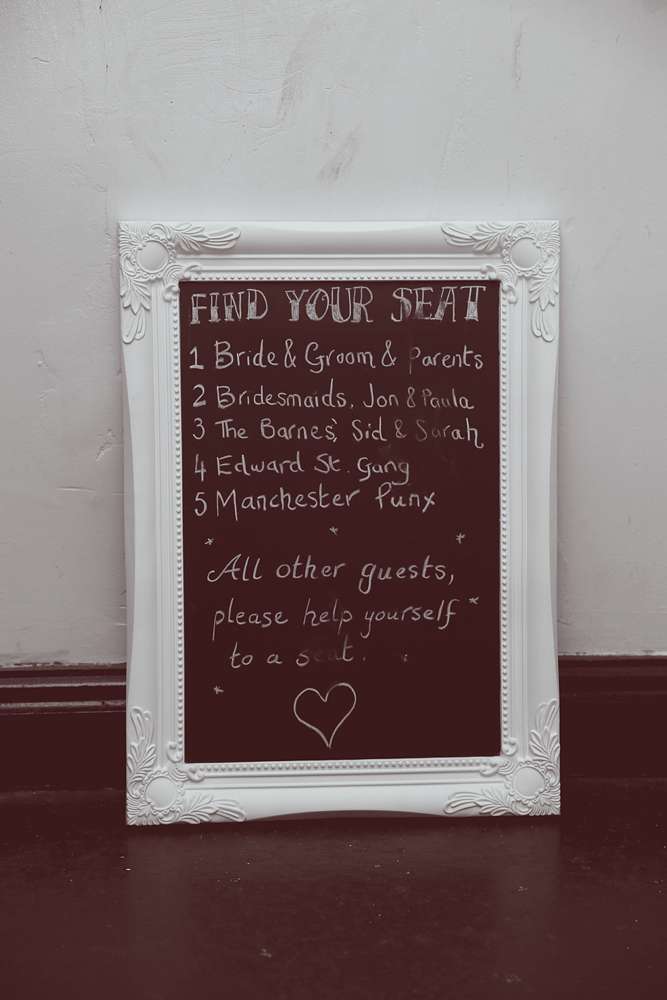 FIND YOUR SEAT
1 Bride & Groom & Parents
2 Bridesmaids, Jon & Paula
3 The Barnes', Sid & Sarah
4 Edward St. Gang
5 Manchester Punx
All other guests,
please help yourself
to a seat.